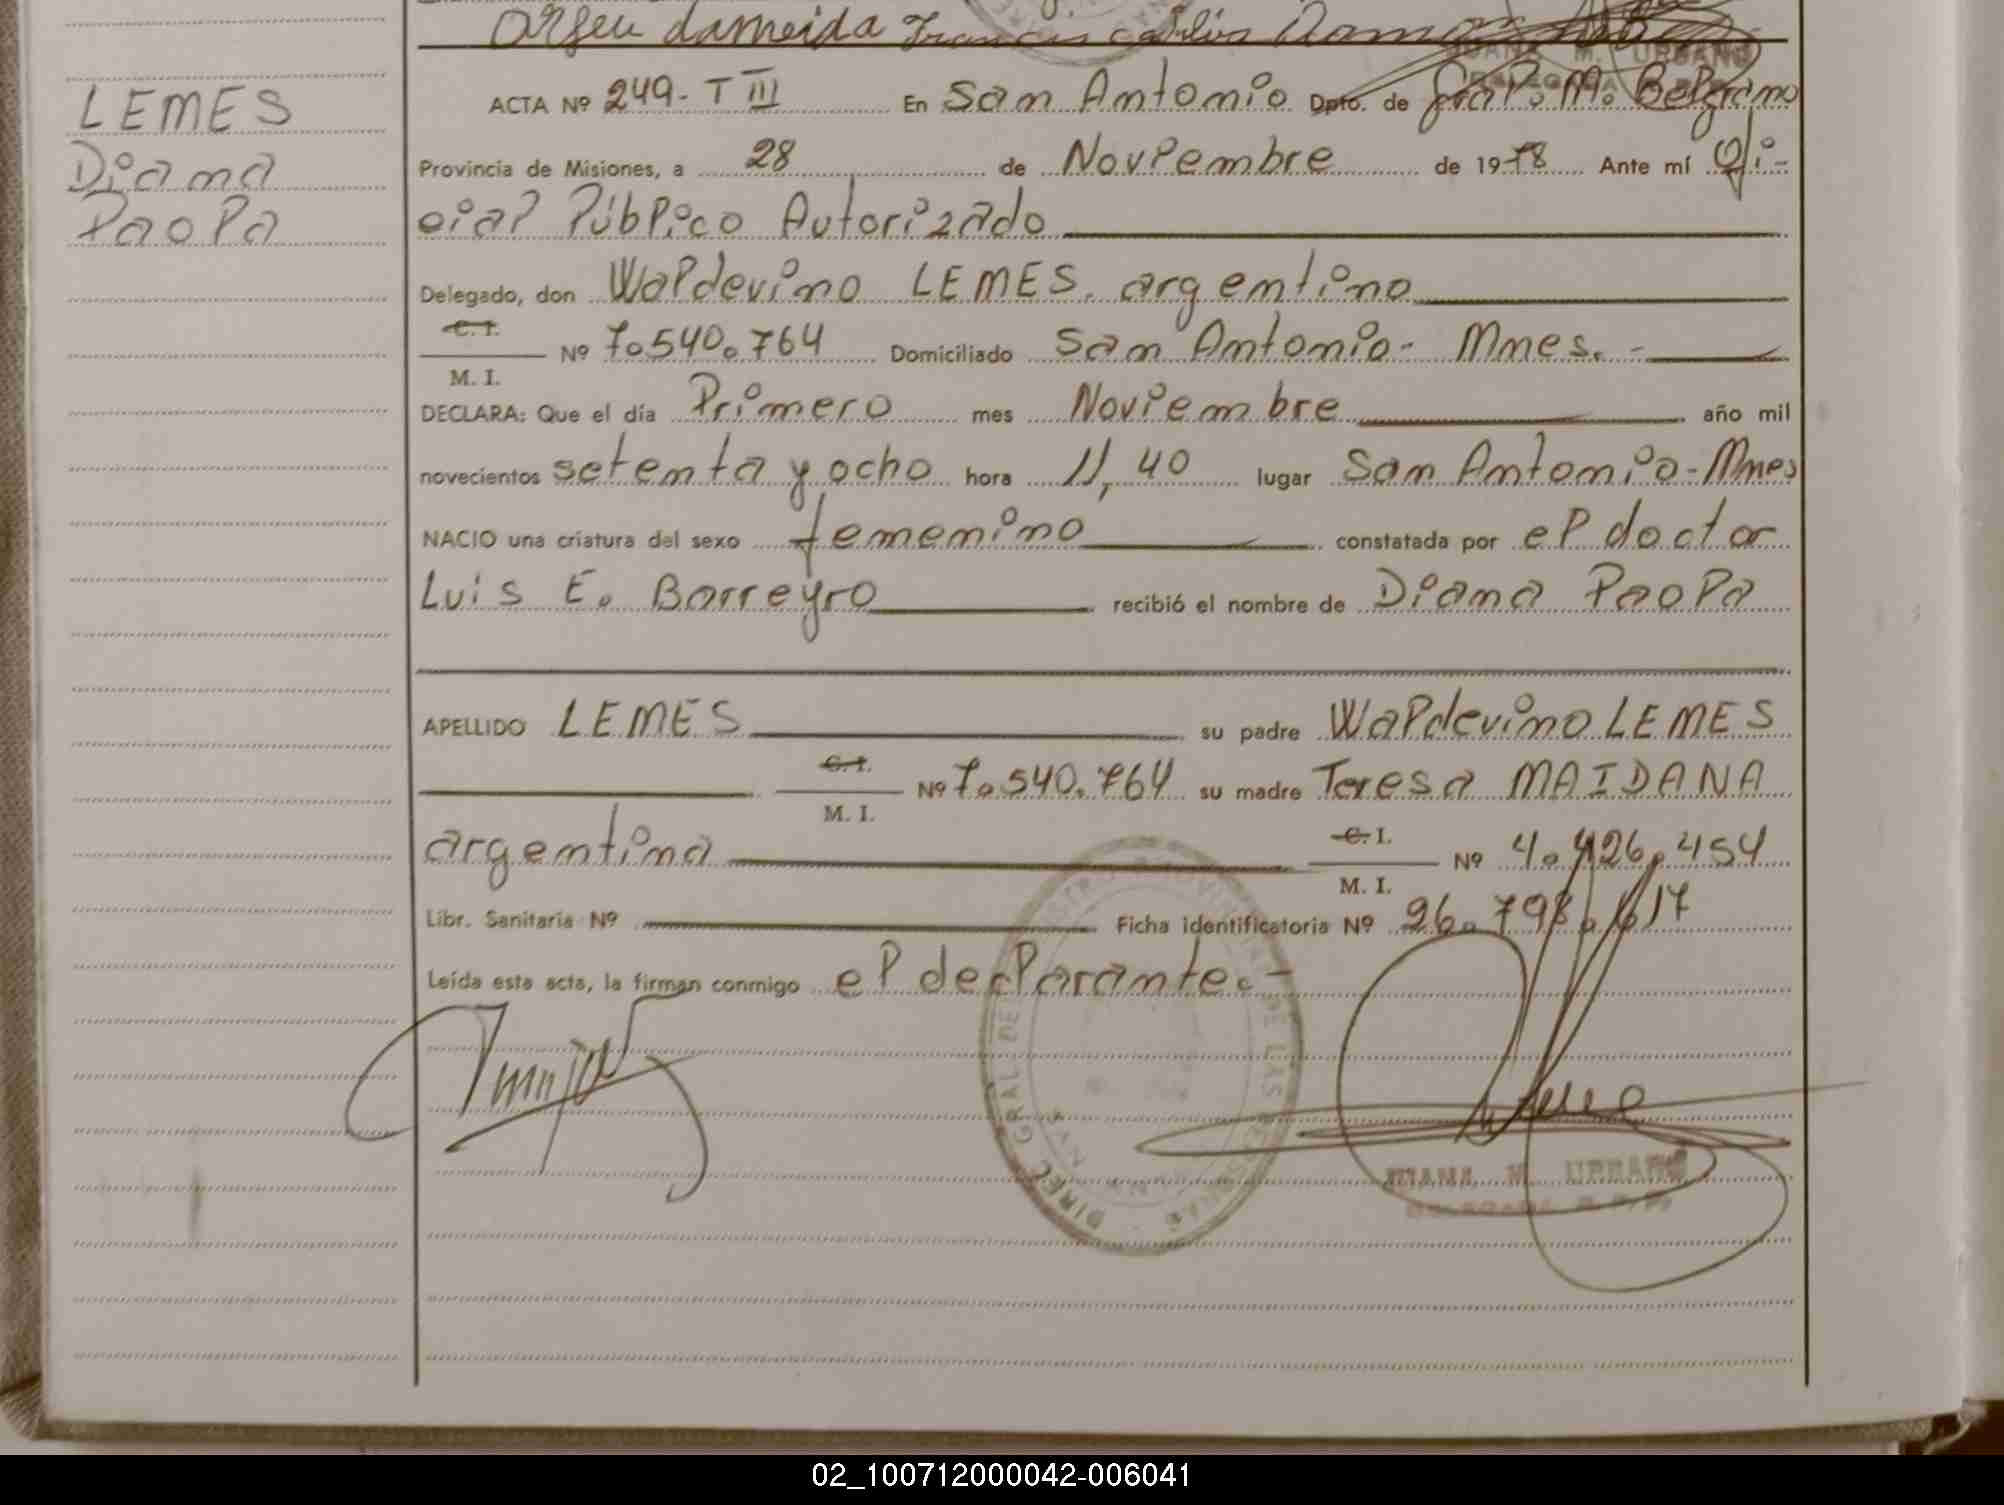 Orfeu dameida Francisco
LEMES
Diana
Paola
ACTA Nº 249- T III En San Antonio Dpto. de Gral. M. Belgrano
Provincia de Misiones, a 28 de Noviembre de 1978 Ante mí Ofi-
cial Público Autorizado
Delegado, don Waldevino LEMES. argentino
C. I.
M. I. Nº 7.540.764 Domiciliado San Antonio- Mnes.-
DECLARA: Que el día Primero mes Noviembre año mil
novecientos setenta y ocho hora 11,40 lugar San Antonio-Mnes
NACIO una criatura del sexo femenino constatada por el doctor
Luis E. Barreyro recibió el nombre de Diana Paola
APELLIDO LEMES su padre Waldevino LEMES
C. I.
M. I. Nº 7.540.764 su madre Teresa MAIDANA
argentina C. I.
M. I. Nº 4.426.454
Libr. Sanitaria Nº Ficha identificatoria Nº 26.798.617
Leída esta acta, la firman conmigo el declarante.-
JUANA M. URBANO
02_100712000042-006041